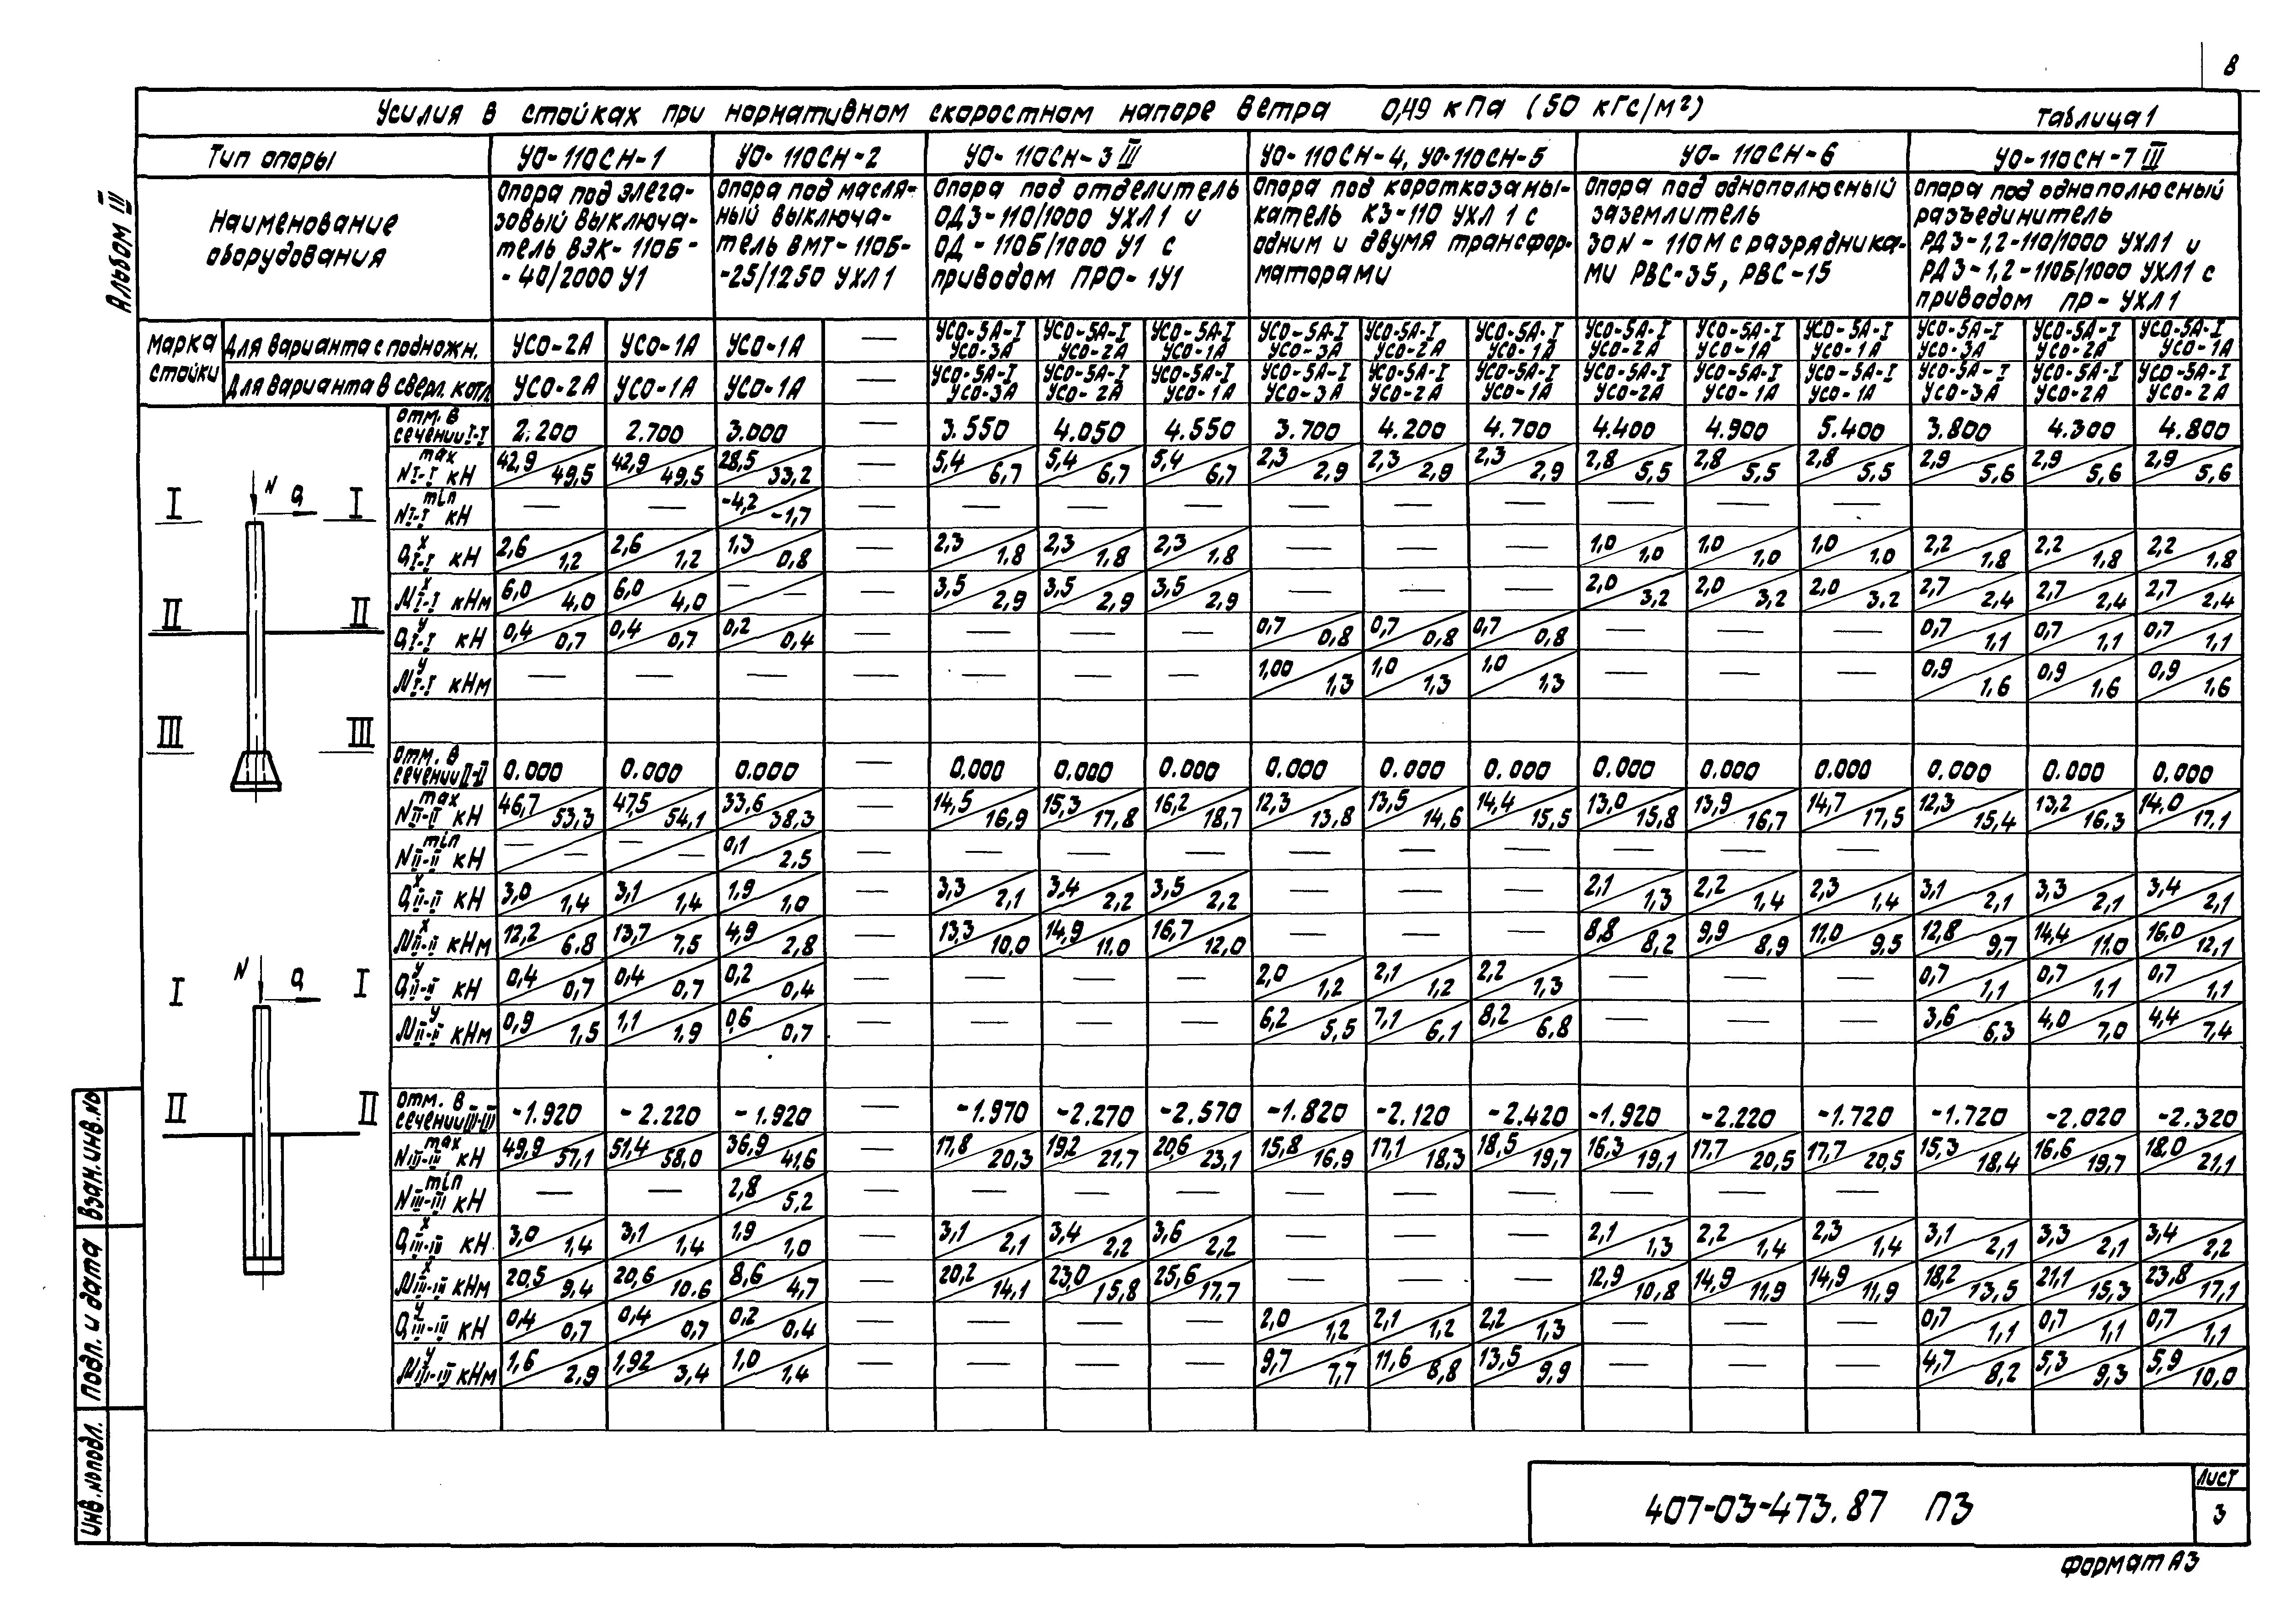 8
Усилия в стойках при нормативном скоростном напоре ветра 0,49 кПа (50 кгс/м²) Таблица 1
Альбом III
Тип опоры УО-110СН-1 УО-110СН-2 УО-110СН-3 III УО-110СН-4, УО-110СН-5 УО-110СН-6 УО-110СН-7 III
Наименование оборудования
Опора под элега-
зовый выключа-
тель ВЭК-110Б-
-40/2000 У1
Опора под масля-
ный выключа-
тель ВМТ-110Б-
-25/1250 УХЛ1
Опора под отделитель
ОДЗ-110/1000 УХЛ1 и
ОД-110Б/1000 У1 с
приводом ПРО-1У1
Опора под короткозамы-
катель КЗ-110 УХЛ 1 с
одним и двумя трансфор-
маторами
Опора под однополюсный
заземлитель
ЗОN-110М с разрядника-
ми РВС-35, РВС-15
Опора под однополюсный
разъединитель
РДЗ-1,2-110/1000 УХЛ1 и
РДЗ-1,2-110Б/1000 УХЛ1 с
приводом ПР-УХЛ1
Марка стойки
Для варианта с подножн. УСО-2А УСО-1А УСО-1А — УСО-5А-I УСО-3А УСО-5А-I УСО-2А УСО-5А-I УСО-1А УСО-5А-I УСО-3А УСО-5А-I УСО-2А УСО-5А-I УСО-1А УСО-5А-I УСО-2А УСО-5А-I УСО-1А УСО-5А-I УСО-1А УСО-5А-I УСО-3А УСО-5А-I УСО-2А УСО-5А-I УСО-1А
Для варианта в сверл. котл. УСО-2А УСО-1А УСО-1А — УСО-5А-I УСО-3А УСО-5А-I УСО-2А УСО-5А-I УСО-1А УСО-5А-I УСО-3А УСО-5А-I УСО-2А УСО-5А-I УСО-1А УСО-5А-I УСО-2А УСО-5А-I УСО-1А УСО-5А-I УСО-1А УСО-5А-I УСО-3А УСО-5А-I УСО-2А УСО-5А-I УСО-2А
Отм. в сечении I-I 2.200 2.700 3.000 — 3.550 4.050 4.550 3.700 4.200 4.700 4.400 4.900 5.400 3.800 4.300 4.800
N max I-I кН 42,9/49,5 42,9/49,5 28,5/33,2 — 5,4/6,7 5,4/6,7 5,4/6,7 2,3/2,9 2,3/2,9 2,3/2,9 2,8/5,5 2,8/5,5 2,8/5,5 2,9/5,6 2,9/5,6 2,9/5,6
N min I-I кН — — -4,2/-1,7 — — — — — — — — — —
Q x I-I кН 2,6/1,2 2,6/1,2 1,3/0,8 — 2,3/1,8 2,3/1,8 2,3/1,8 — — — 1,0/1,0 1,0/1,0 1,0/1,0 2,2/1,8 2,2/1,8 2,2/1,8
М x I-I кНм 6,0/4,0 6,0/4,0 —/— — 3,5/2,9 3,5/2,9 3,5/2,9 — — — 2,0/3,2 2,0/3,2 2,0/3,2 2,7/2,4 2,7/2,4 2,7/2,4
Q y I-I кН 0,4/0,7 0,4/0,7 0,2/0,4 — — — — 0,7/0,8 0,7/0,8 0,7/0,8 — — — 0,7/1,1 0,7/1,1 0,7/1,1
М y I-I кНм — — — — — — — 1,00/1,3 1,0/1,3 1,0/1,3 — — — 0,9/1,6 0,9/1,6 0,9/1,6
Отм. в сечении II-II 0.000 0.000 0.000 — 0.000 0.000 0.000 0.000 0.000 0.000 0.000 0.000 0.000 0.000 0.000 0.000
N max II-II кН 46,7/53,3 47,5/54,1 33,6/38,3 — 14,5/16,9 15,3/17,8 16,2/18,7 12,3/13,8 13,5/14,6 14,4/15,5 13,0/15,8 13,9/16,7 14,7/17,5 12,3/15,4 13,2/16,3 14,0/17,1
N min II-II кН —/— —/— 0,1/2,5 — — — — — — — — — —
Q x II-II кН 3,0/1,4 3,1/1,4 1,9/1,0 — 3,3/2,1 3,4/2,2 3,5/2,2 — — — 2,1/1,3 2,2/1,4 2,3/1,4 3,1/2,1 3,3/2,1 3,4/2,1
М x II-II кНм 12,2/6.8 13,7/7,5 4,9/2,8 — 13,3/10,0 14,9/11.0 16,7/12,0 — — — 8,8/8,2 9,9/8,9 11,0/9,5 12,8/9,7 14,4/11.0 16,0/12,1
Q y II-II кН 0,4/0,7 0,4/0,7 0,2/0,4 — — — — 2,0/1,2 2,1/1,2 2,2/1,3 — — — 0,7/1,1 0,7/1,1 0,7/1,1
М y II-II кНм 0,9/1,5 1,1/1,9 0,6/0,7 — — — — 6,2/5,5 7,1/6,1 8,2/6,8 — — — 3,6/6,3 4,0/7,0 4,4/7,4
Отм. в сечении III-III -1.920 -2.220 -1.920 — -1.970 -2.270 -2.570 -1.820 -2.120 -2.420 -1.920 -2.220 -1.720 -1.720 -2.020 -2.320
N max III-III кН 49,9/57,1 51,4/58,0 36,9/41,6 — 17,8/20,3 19,2/21,7 20,6/23,1 15,8/16,9 17,1/18,3 18,5/19,7 16,3/19,1 17,7/20,5 17,7/20,5 15,3/18,4 16,6/19,7 18,0/21,1
N min III-III кН — — 2,8/5,2 — — — — — — — — — —
Q x III-III кН 3,0/1,4 3,1/1,4 1,9/1,0 — 3,1/2,1 3,4/2,2 3,6/2,2 — — — 2,1/1,3 2,2/1,4 2,3/1,4 3,1/2,1 3,3/2,1 3,4/2,2
М x III-III кНм 20,5/9,4 20,6/10.6 8,6/4,7 — 20,2/14,1 23,0/15,8 25,6/17,7 — — — 12,9/10,8 14,9/11,9 14,9/11,9 18,2/13,5 21,1/15,3 23,8/17,1
Q y III-III кН 0,4/0,7 0,4/0,7 0,2/0,4 — — — — 2,0/1,2 2,1/1,2 2,2/1,3 — — — 0,7/1,1 0,7/1,1 0,7/1,1
М y III-III кНм 1,6/2,9 1,92/3,4 1,0/1,4 — — — — 9,7/7,7 11,6/8,8 13,5/9,9 — — — 4,7/8,2 5,3/9,3 5,9/10,0
N Q
I I
II II
III III
N Q
I I
II II
Взан. инв. №
Подп. и дата
Инв. № подл.
407-03-473.87 ПЗ
Лист
3
Формат А3